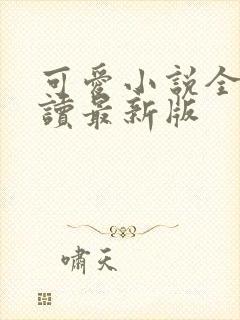 可愛小說全
讀最新版
嘯天